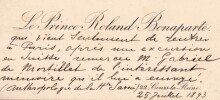 Le Prince Roland Bonaparte
qui vient seulement de rentrer
à Paris, après une excursion
en Suisse remercie M. Gabriel
de Mortillet de l'intéressant
mémoire qu'il lui a envoyé.
(Anthropologie de la Hte Savoie)
22, Cours la Reine
25 juillet 1893